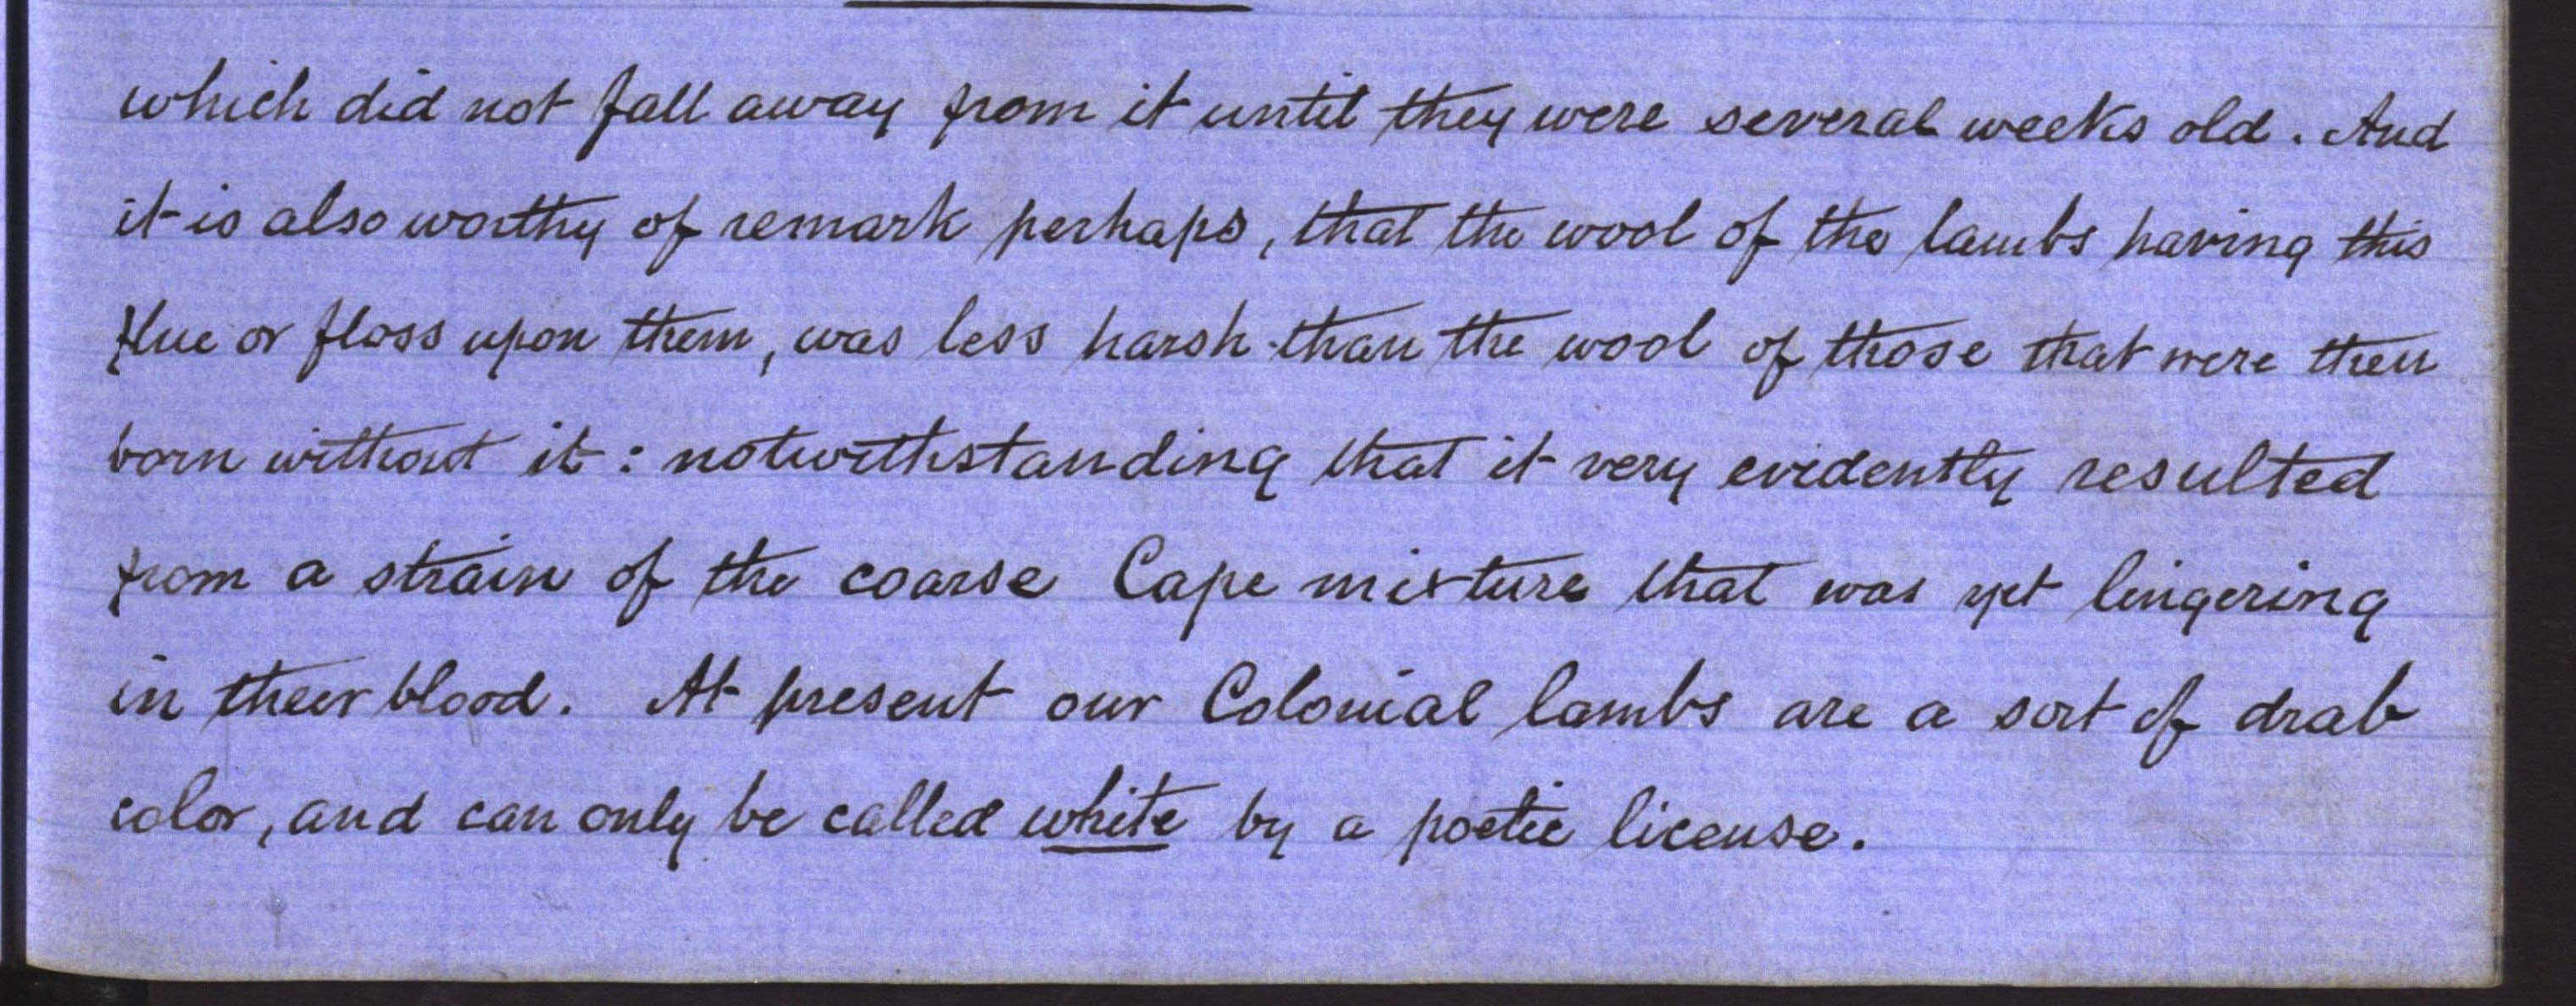 which did not fall away from it until they were several weeks old. And
it is also worthy of remark perhaps, that the wool of the lambs having this
flue or floss upon them, was less harsh than the wool of those that were then
born without it: notwithstanding that it very evidently resulted
from a strain of the coarse Cape mixture that was yet lingering
in their blood. At present our Colonial lambs are a sort of drab
color, and can only be called white by a poetic license.